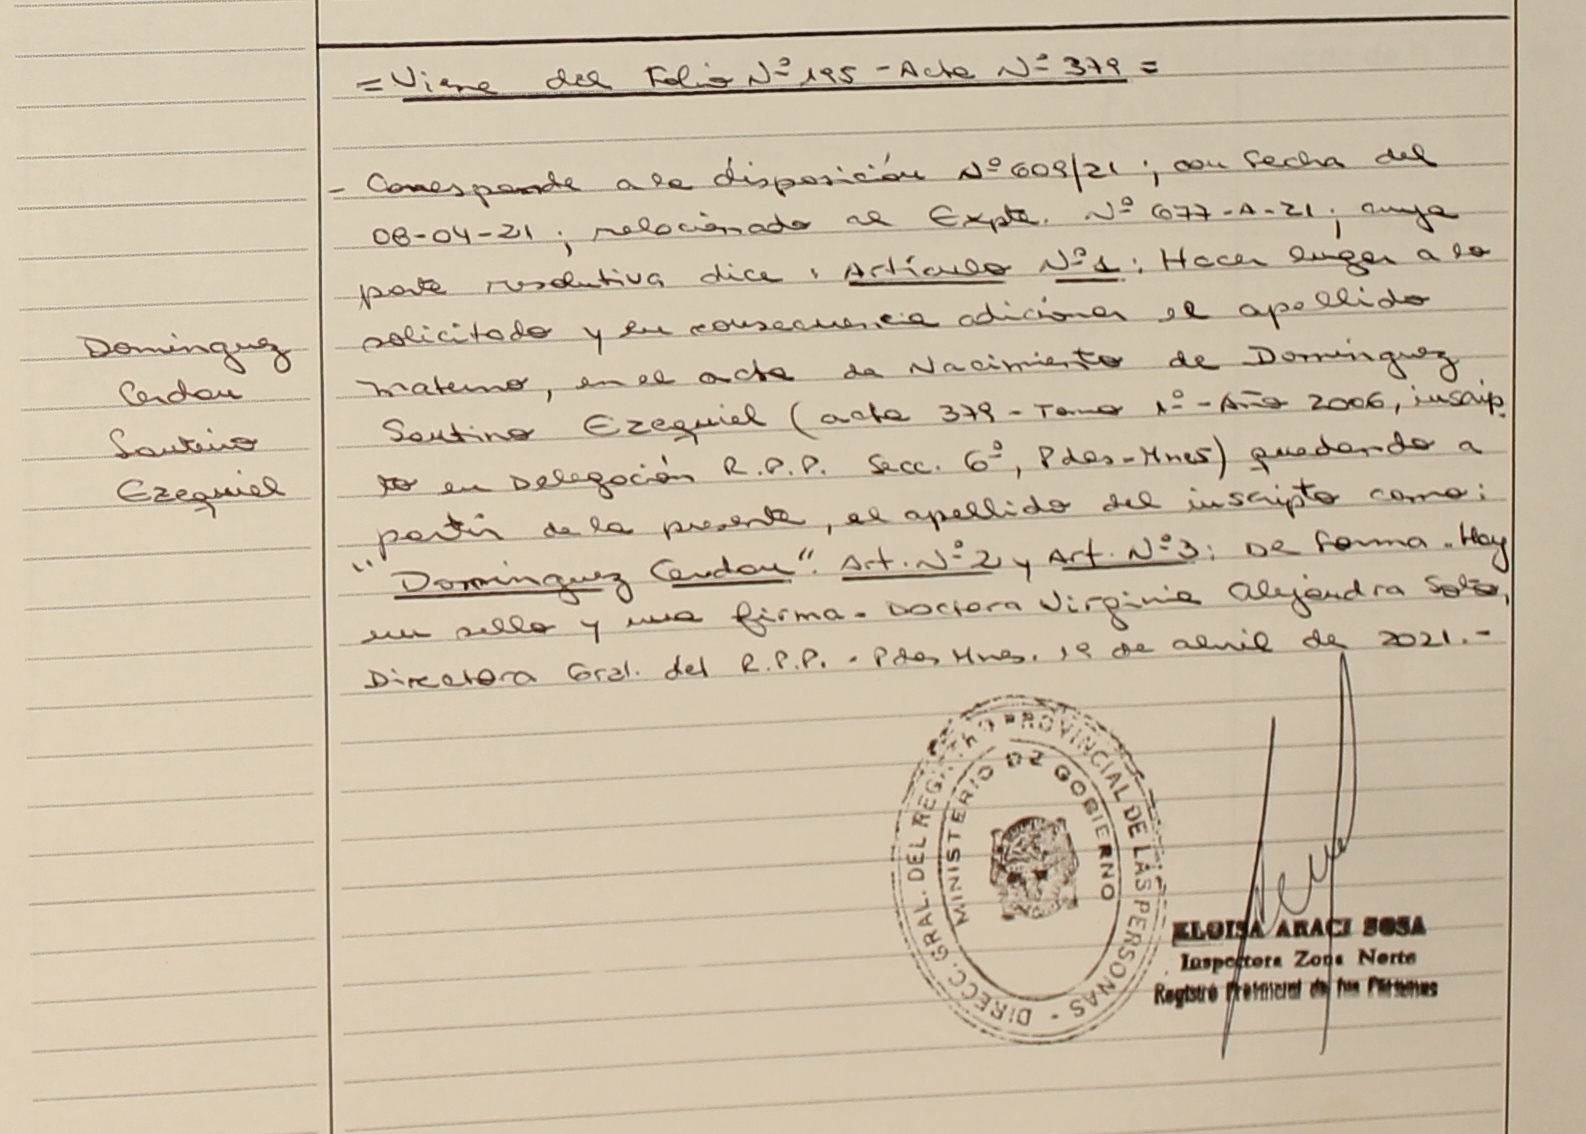 = Viene del Folio Nº 195 - Acta Nº 379 =
- Corresponde a la disposición Nº 609/21 ; con fecha del
08-04-21 ; relacionado al Expte. Nº 677-A-21 ; cuya
parte resolutiva dice : Artículo Nº 1 : Hacer lugar a lo
solicitado y en consecuencia adicionar el apellido
materno, en el acta de Nacimiento de Dominguez
Santino Ezequiel (acta 379 - Tomo 1º - Año 2006, inscrip
to en Delegación R.P.P. Secc. 6º, Pdas-Mnes) quedando a
partir de la presente, el apellido del inscripto como :
"Dominguez Cerdan". Art. Nº 2 y Art. Nº 3 : De forma. Hay
un sello y una firma. Doctora Virginia Alejandra Soto,
Directora Gral. del R.P.P. - Pdas Mnes. 19 de abril de 2021.-
Dominguez
Cerdan
Santino
Ezequiel
DIRECC. GRAL. DEL REGISTRO PROVINCIAL DE LAS PERSONAS -
MINISTERIO DE GOBIERNO
ELOISA ARACI SOSA
Inspectora Zona Norte
Registro Provincial de las Personas